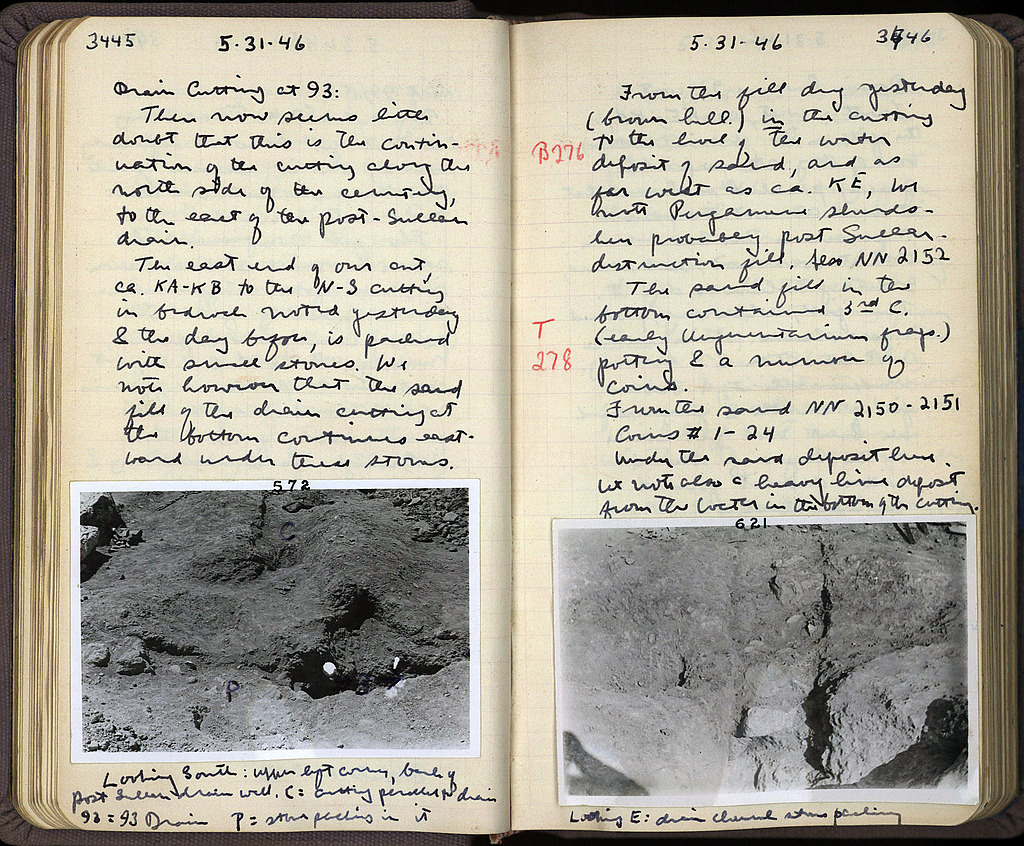 3445
5·31·46
Drain Cutting at 93:
There now seems little
doubt that this is the contin-
uation of the cutting along the
north side of the cemetery,
to the east of the post-Sullan
drain.
The east end of our cut,
ca. KA-KB to the N-S cutting
in bedrock noted yesterday
& the day before, is packed
with small stones. We
note however that the sand
fill of the drain cutting at
the bottom continues east-
ward under these stones.
572
C
P
Looking South: upper left corner, back of
post Sullan drain wall. C = cutting parallel to drain
93 = 93 Drain P = stone packing in it
5·31·46
3446
From the fill dug yesterday
(brown fill) in the cutting
B276
to the level of the water
deposit of sand, and as
far west as ca. KE, we
note Pergamene sherds-
hen probably post Sullan-
destruction fill. See NN 2152
The sand fill in the
T
278
bottom contained 3rd C.
(early Unguentarium frags.)
pottery & a number of
coins.
From the sand NN 2150-2151
Coins # 1-24
Under the sand deposit here
we note also a heavy lime deposit
from the water in the bottom of the cutting.
621
Looking E: drain channel stone packing